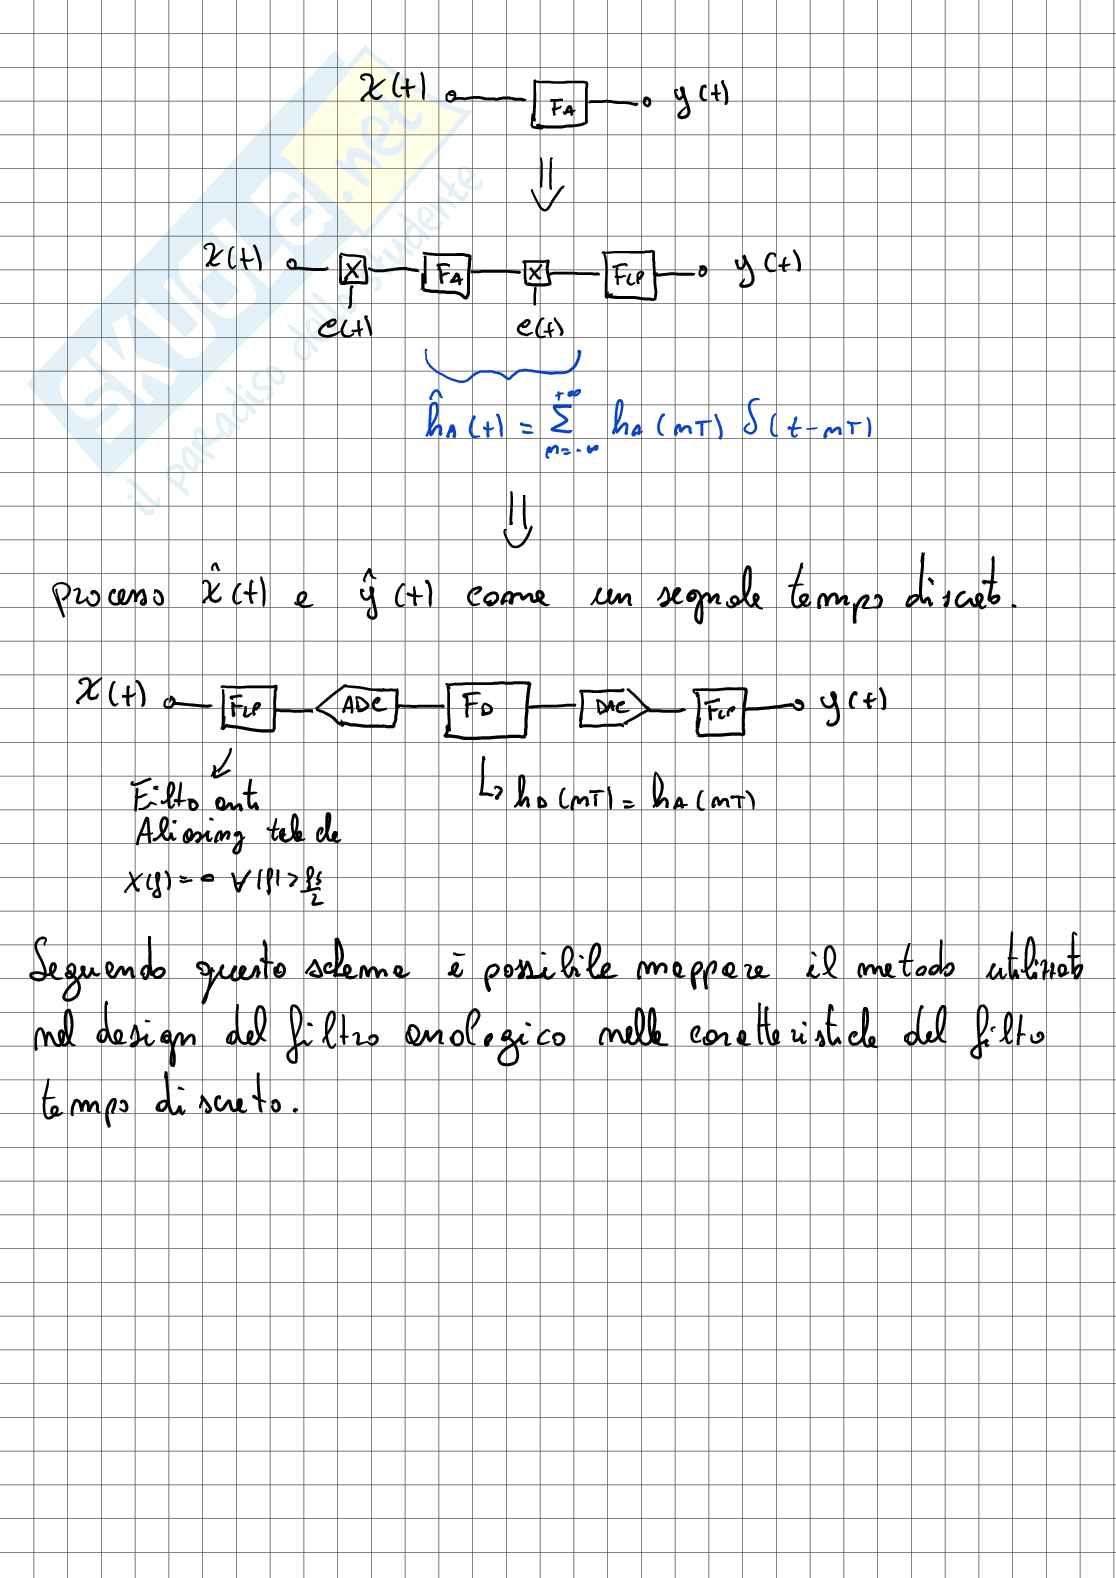 x(t) F_A y(t)
⇓
x(t) X F_A X F_LP y(t)
c(t) c(t)
ĥ_A(t) = Σ_{n=-∞}^{+∞} h_A(nT) δ(t-nT)
⇓
Processo x̂(t) e ŷ(t) come un segnale tempo discreto.
x(t) F_LP ADC F_D DAC F_LP y(t)
↳ h_D(nT) = h_A(nT)
Filtro anti
Aliasing tale che
X(f) = 0 ∀|f| > fs/2
Seguendo questo schema è possibile mappare il metodo utilizzato
nel design del filtro analogico nelle caratteristiche del filtro
tempo discreto.
SKUOLA.net
il paradiso dello studente